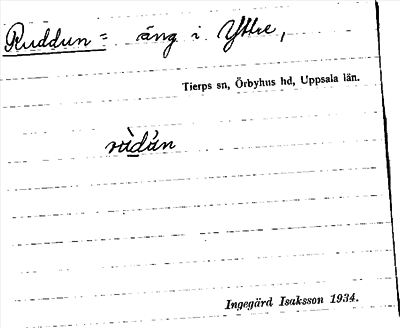 Ruddun = äng i Yttre,
Tierps sn, Örbyhus hd, Uppsala län.
rùdún
Ingegärd Isaksson 1934.